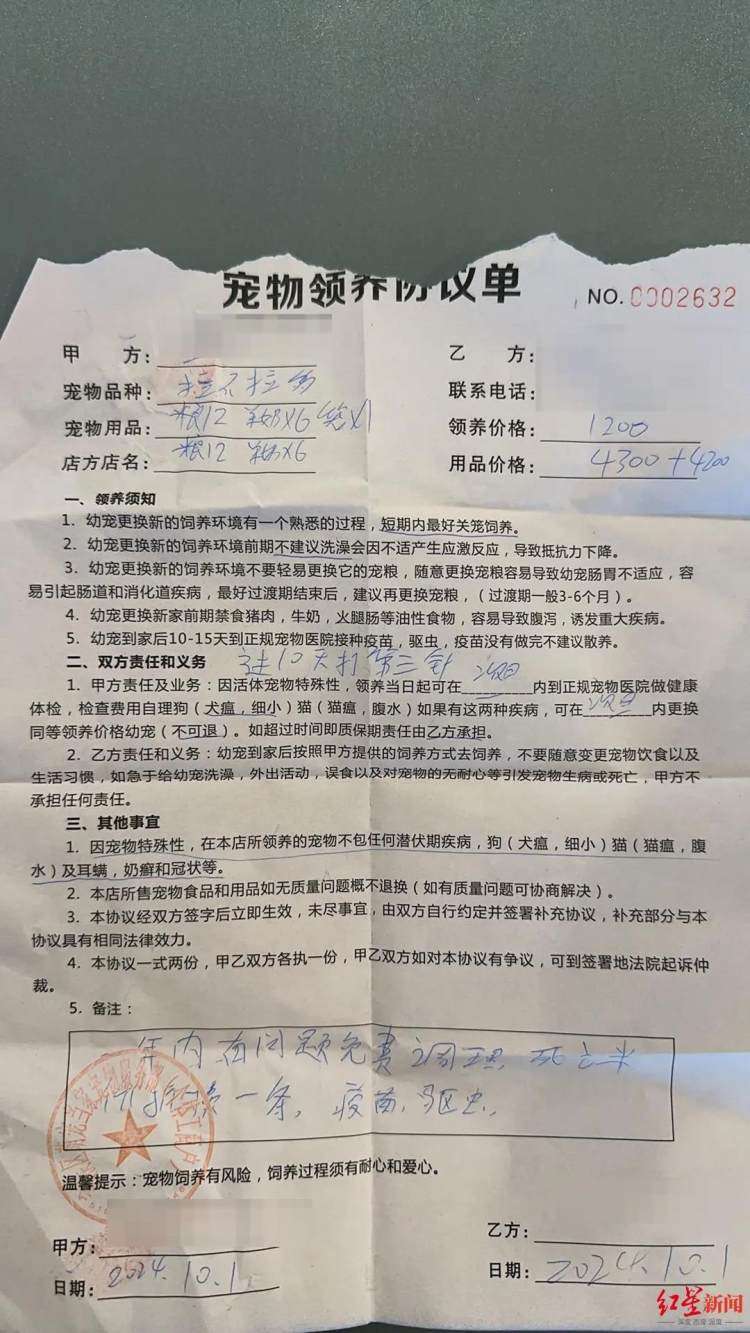 宠物领养协议单 NO. 0002632
甲 方： 乙 方：
宠物品种：拉不拉多 联系电话：
宠物用品：粮12 羊奶X6 领养价格：1200
店方店名：粮12 羊奶X6 用品价格：4300+4200
一、领养须知
1. 幼宠更换新的饲养环境有一个熟悉的过程，短期内最好关笼饲养。
2. 幼宠更换新的饲养环境前期不建议洗澡会因不适产生应激反应，导致抵抗力下降。
3. 幼宠更换新的环境不要轻易更换它的宠粮，随意更换宠粮容易导致幼宠肠胃不适应，容
易引起肠道和消化道疾病，最好过渡期结束后，建议再更换宠粮，（过渡期一般3-6个月）。
4. 幼宠更换新家前期禁食猪肉，牛奶，火腿肠等油性食物，容易导致腹泻，诱发重大疾病。
5. 幼宠到家后10-15天到正规宠物医院接种疫苗，驱虫，疫苗没有做完不建议散养。
二、双方责任和义务 10天打第三针
1. 甲方责任及业务：因活体宠物特殊性，领养当日起可在次日内到正规宠物医院做健康
体检，检查费用自理狗（犬瘟，细小）猫（猫瘟，腹水）如果有这两种疾病，可在次日内更换
同等领养价格幼宠（不可退）。如超过时间即质保期责任由乙方承担。
2. 乙方责任和义务：幼宠到家后按照甲方提供的饲养方式去饲养，不要随意变更宠物饮食以及
生活习惯，如急于给幼宠洗澡，外出活动，误食以及对宠物的无耐心等引发宠物生病或死亡，甲方不
承担任何责任。
三、其他事宜
1. 因宠物特殊性，在本店所领养的宠物不包任何潜伏期疾病，狗（犬瘟，细小）猫（猫瘟，腹
水）及耳螨，奶癣和冠状等。
2. 本店所售宠物食品和用品如无质量问题概不退换（如有质量问题可协商解决）。
3. 本协议经双方签字后立即生效，未尽事宜，由双方自行约定并签署补充协议，补充部分与本
协议具有相同法律效力。
4. 本协议一式两份，甲乙双方各执一份，甲乙双方如对本协议有争议，可到签署地法院起诉仲
裁。
5. 备注：
年内有问题免费调理，死亡半
换一条，疫苗，驱虫，
温馨提示：宠物饲养有风险，饲养过程须有耐心和爱心。
甲方： 乙方：
日期：2024.10.1 日期：2024.10.1
红星新闻
深度 态度 温度